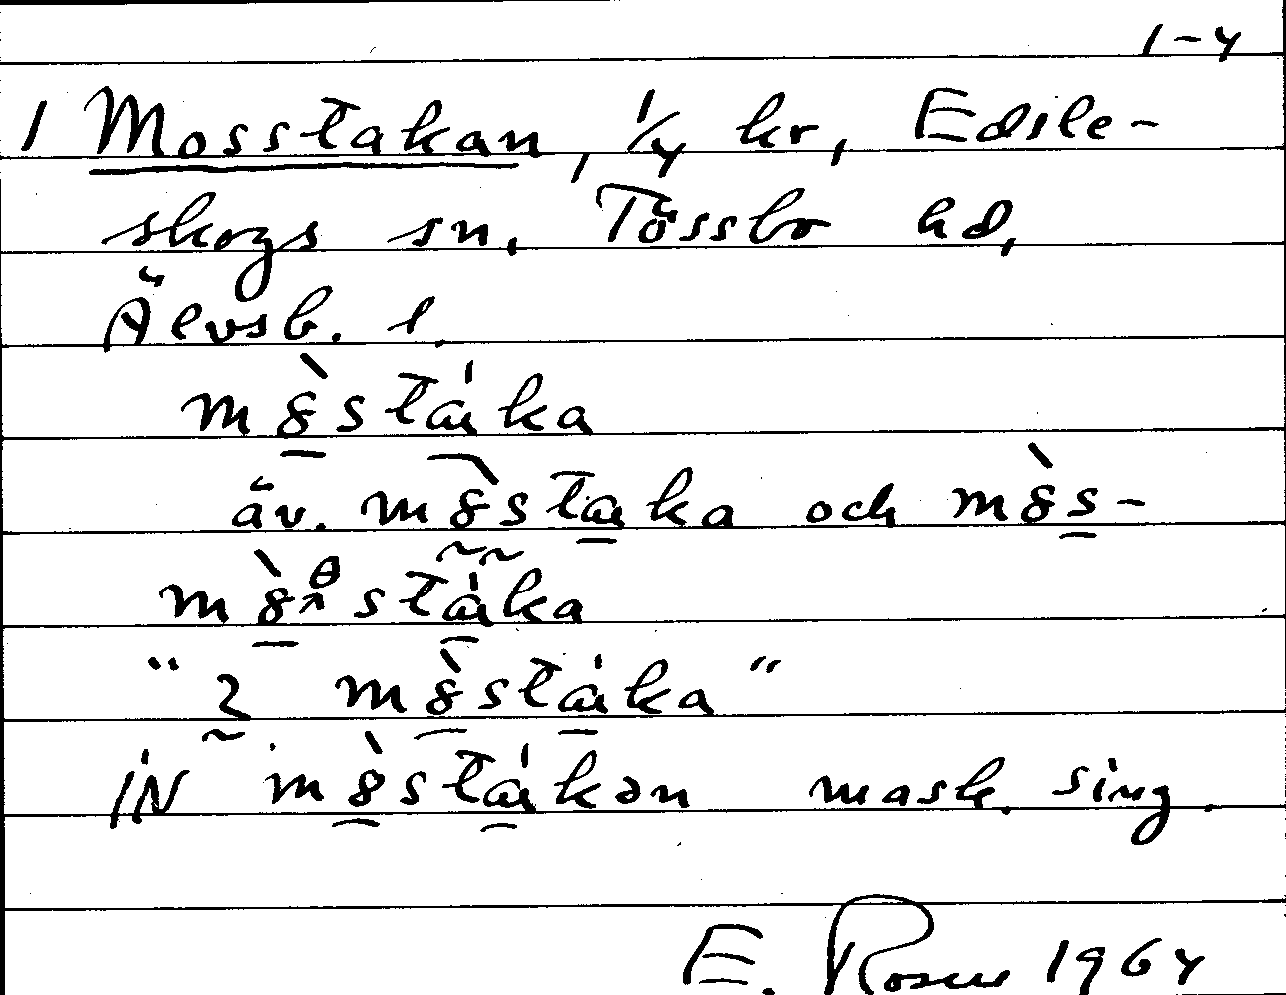 1-4
1 Mosstakan, 1/4 kr, Edsle-
skogs sn, Tössbo hd,
Älvsb. l.
m8̀stáka
äv. m8̀staka och m8̀s-
m8̀stàka
"2 m8̀stáka"
iN m8̀stákən mask. sing.
E. Rosen 1964